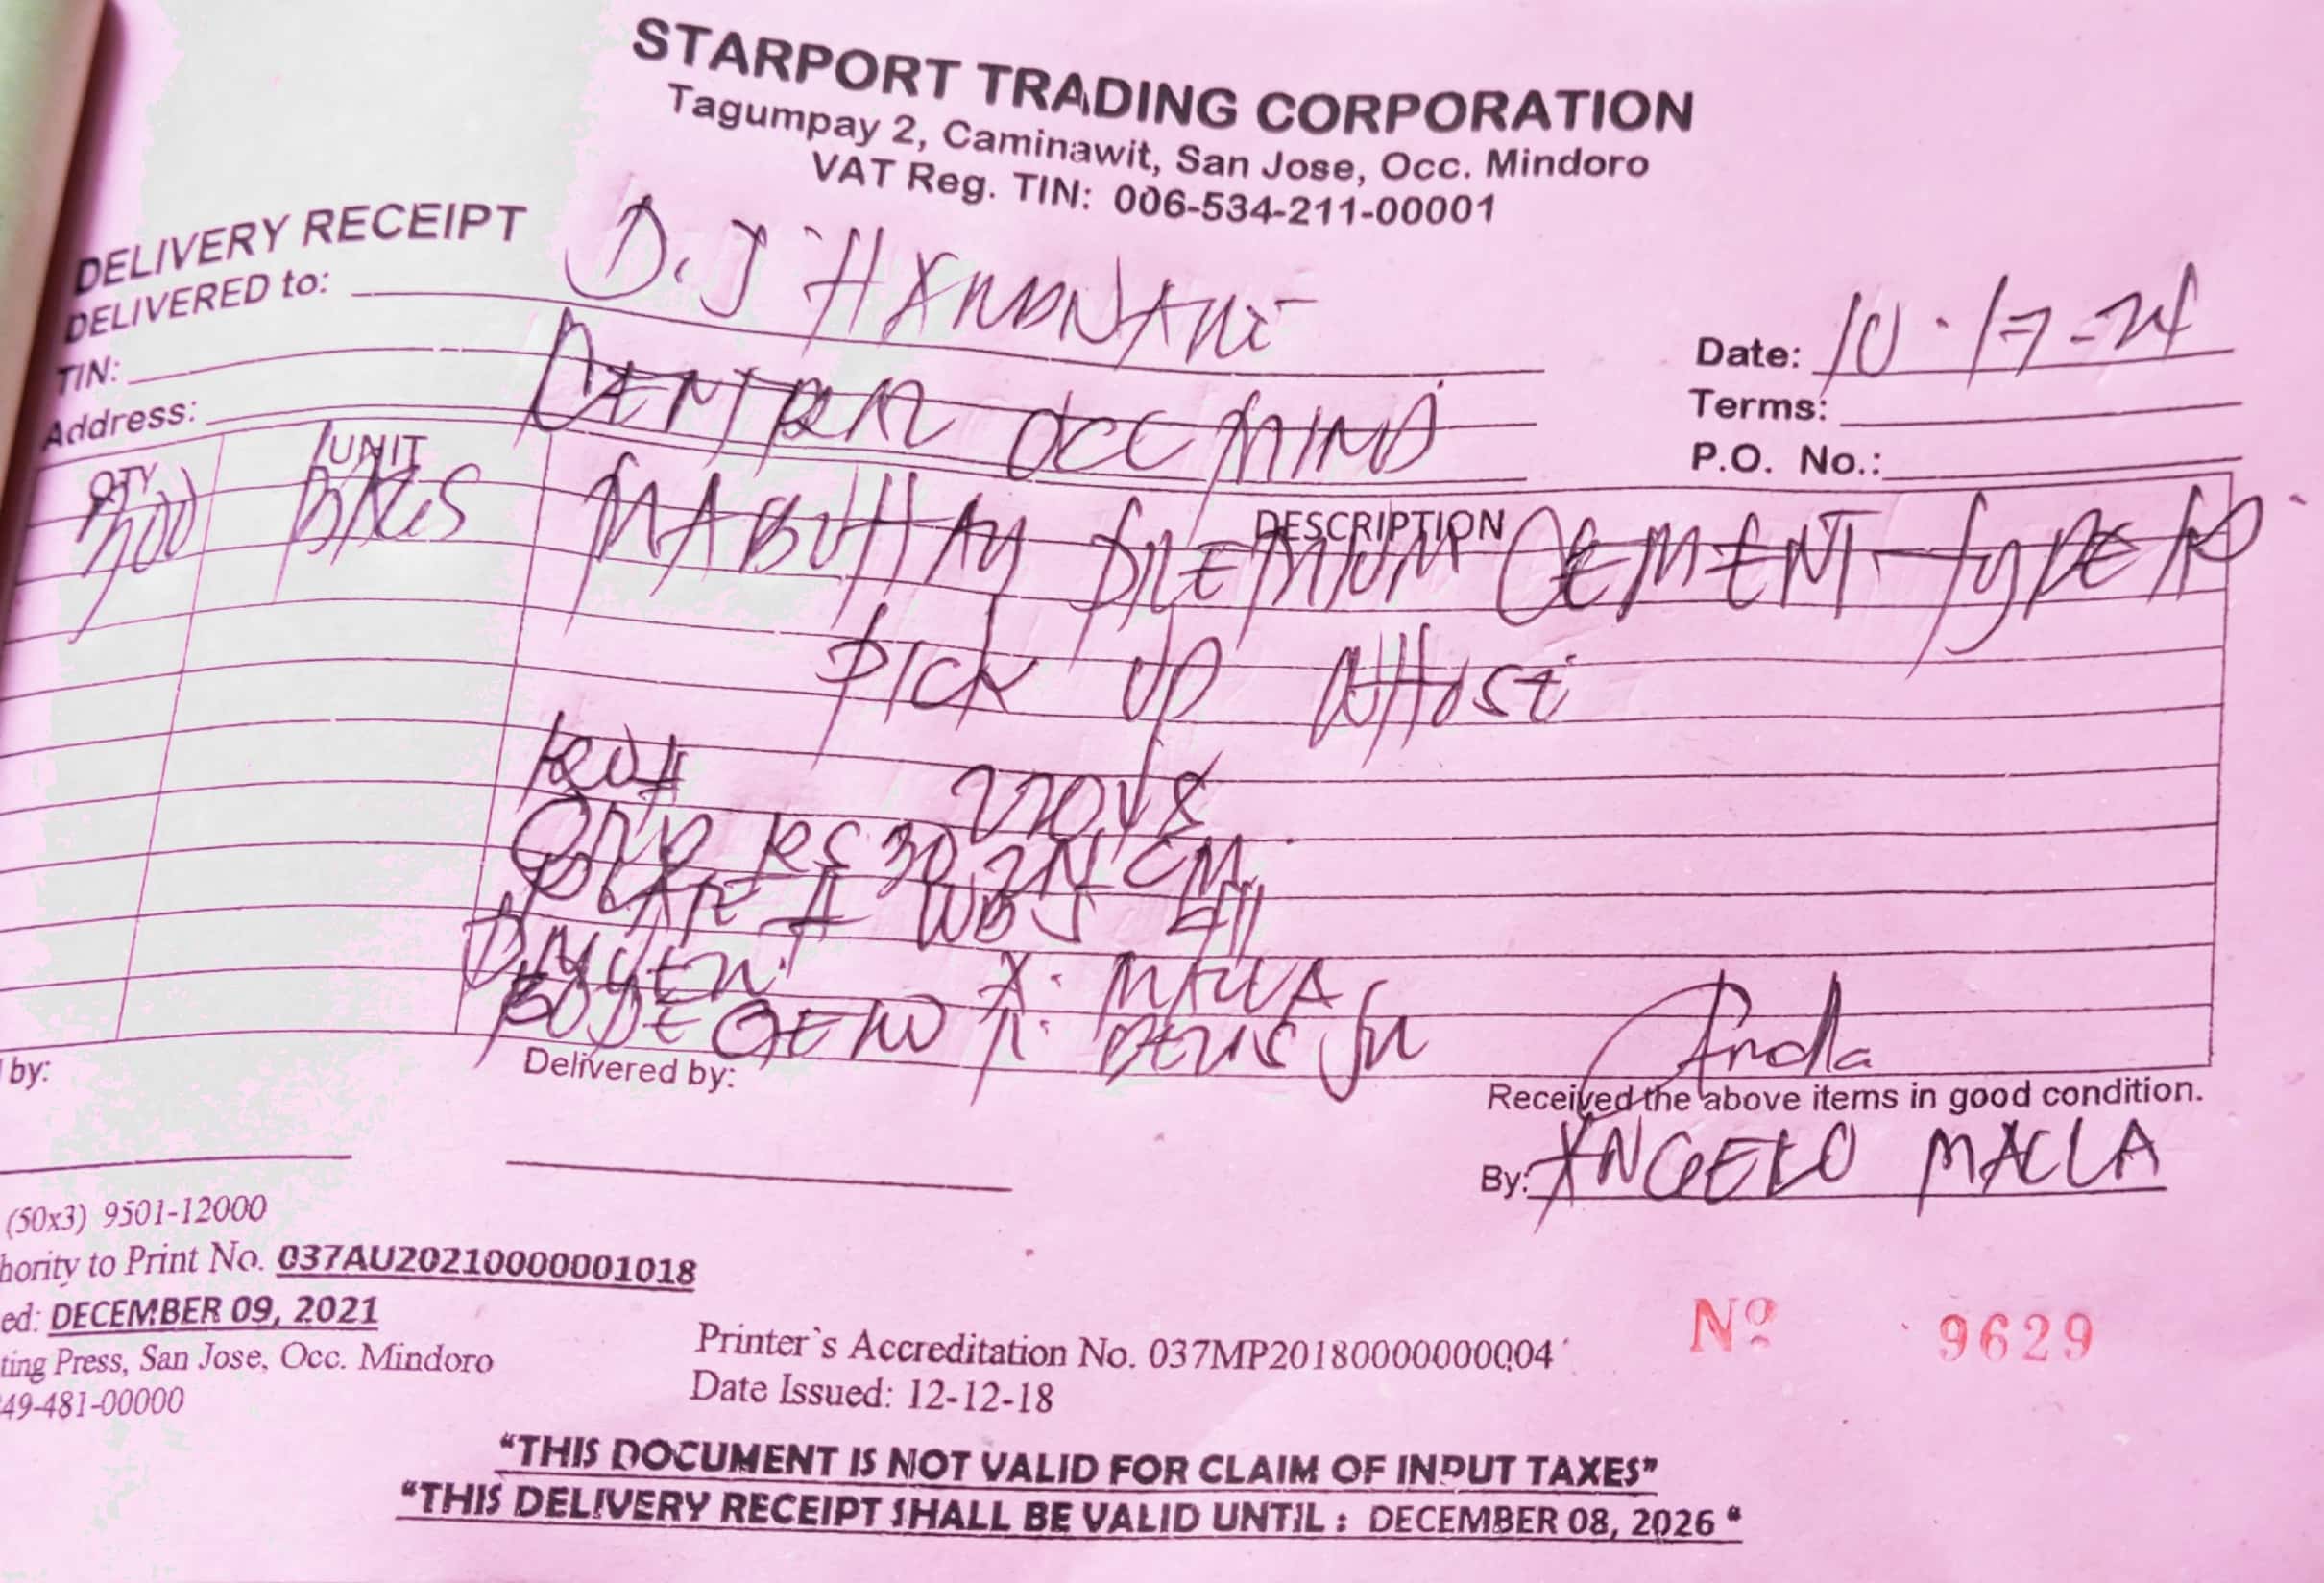 STARPORT TRADING CORPORATION
Tagumpay 2, Caminawit, San Jose, Occ. Mindoro
VAT Reg. TIN: 006-534-211-00001
DELIVERY RECEIPT
DELIVERED to: D.J HARDWARE
TIN:
Address: CENTRAL OCC MIND
Date: 10-17-24
Terms:
P.O. No.:
QTY UNIT DESCRIPTION
BAGS MABUHAY PREMIUM CEMENT TYPE
PICK UP
PLATE # WBJ
BODEGERO
by:
Delivered by:
Received the above items in good condition.
By: ANGELO MACLA
(50x3) 9501-12000
hority to Print No. 037AU20210000001018
ed: DECEMBER 09, 2021
ting Press, San Jose, Occ. Mindoro
49-481-00000
Printer's Accreditation No. 037MP20180000000004
Date Issued: 12-12-18
Nº 9629
"THIS DOCUMENT IS NOT VALID FOR CLAIM OF INPUT TAXES"
"THIS DELIVERY RECEIPT SHALL BE VALID UNTIL : DECEMBER 08, 2026 "